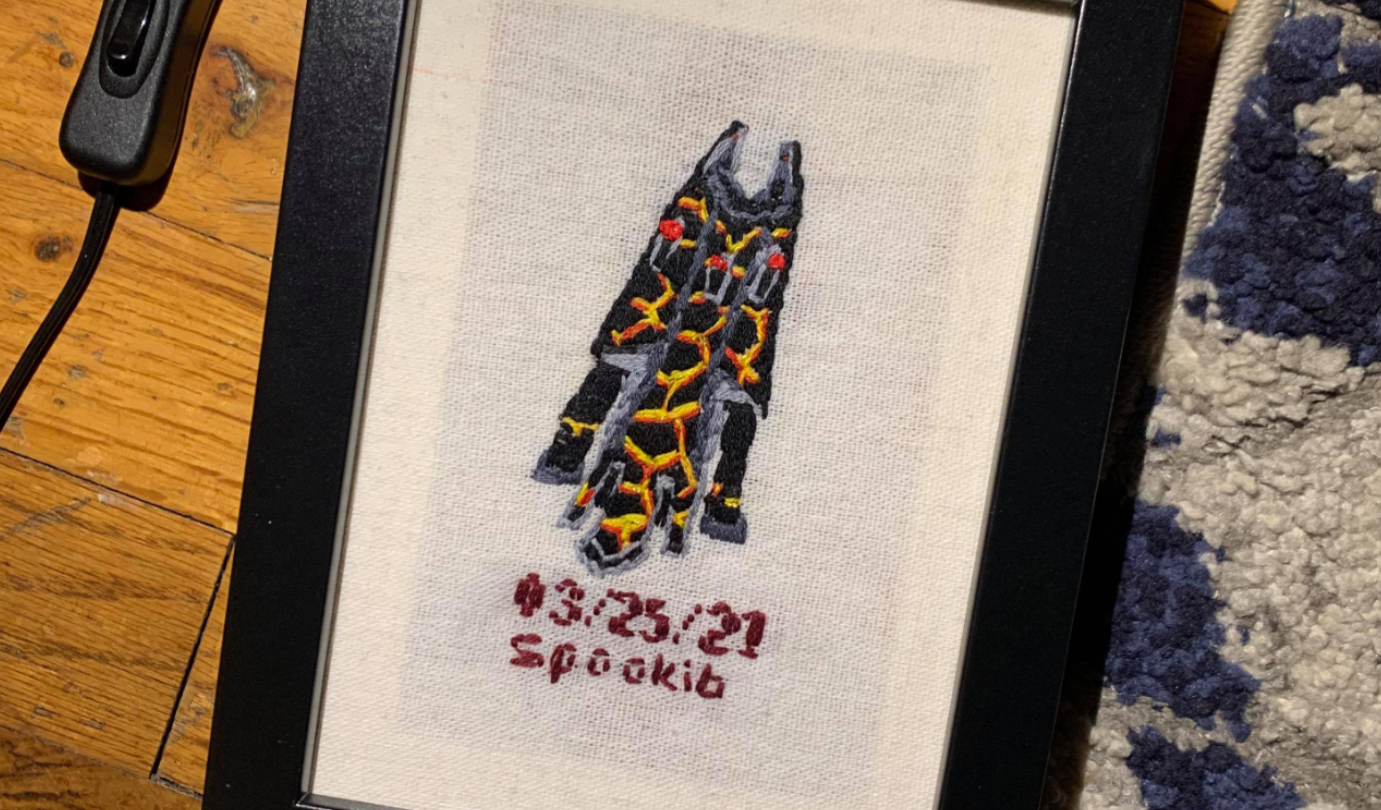 03/25/21
Spookib